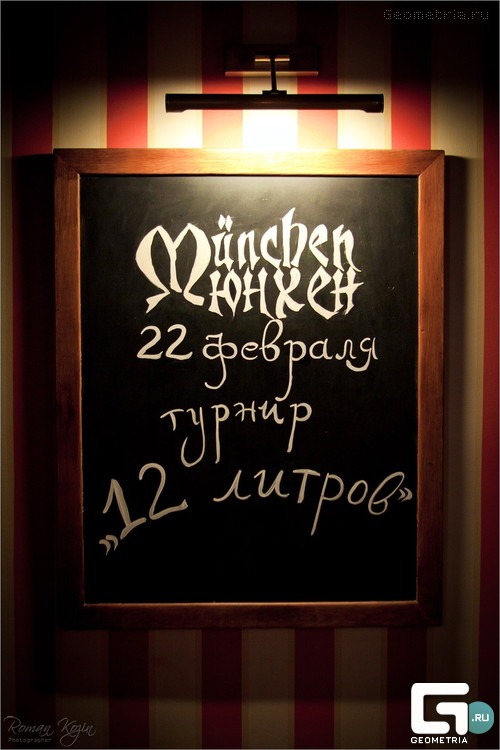 Geometria.ru
München
Мюнхен
22 февраля
турнир
„12 литров»
Roman Kozin
Photographer
G .RU
GEOMETRIA